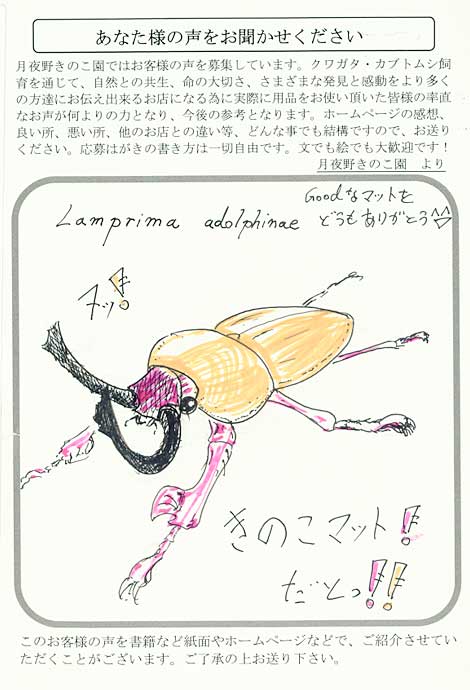 あなた様の声をお聞かせください
月夜野きのこ園ではお客様の声を募集しています。クワガタ・カブトムシ飼
育を通じて、自然との共生、命の大切さ、さまざまな発見と感動をより多く
の方達にお伝え出来るお店になる為に実際に用品をお使い頂いた皆様の率直
なお声が何よりの力となり、今後の参考となります。ホームページの感想、
良い所、悪い所、他のお店との違い等、どんな事でも結構ですので、お送り
ください。応募はがきの書き方は一切自由です。文でも絵でも大歓迎です！
月夜野きのこ園　より
Goodなマットを
どうもありがとう^^
Lamprima adolphinae
ヌッ！
きのこマット！
だとっ！！
このお客様の声を書籍など紙面やホームページなどで、ご紹介させてい
ただくことがございます。ご了承の上お送り下さい。